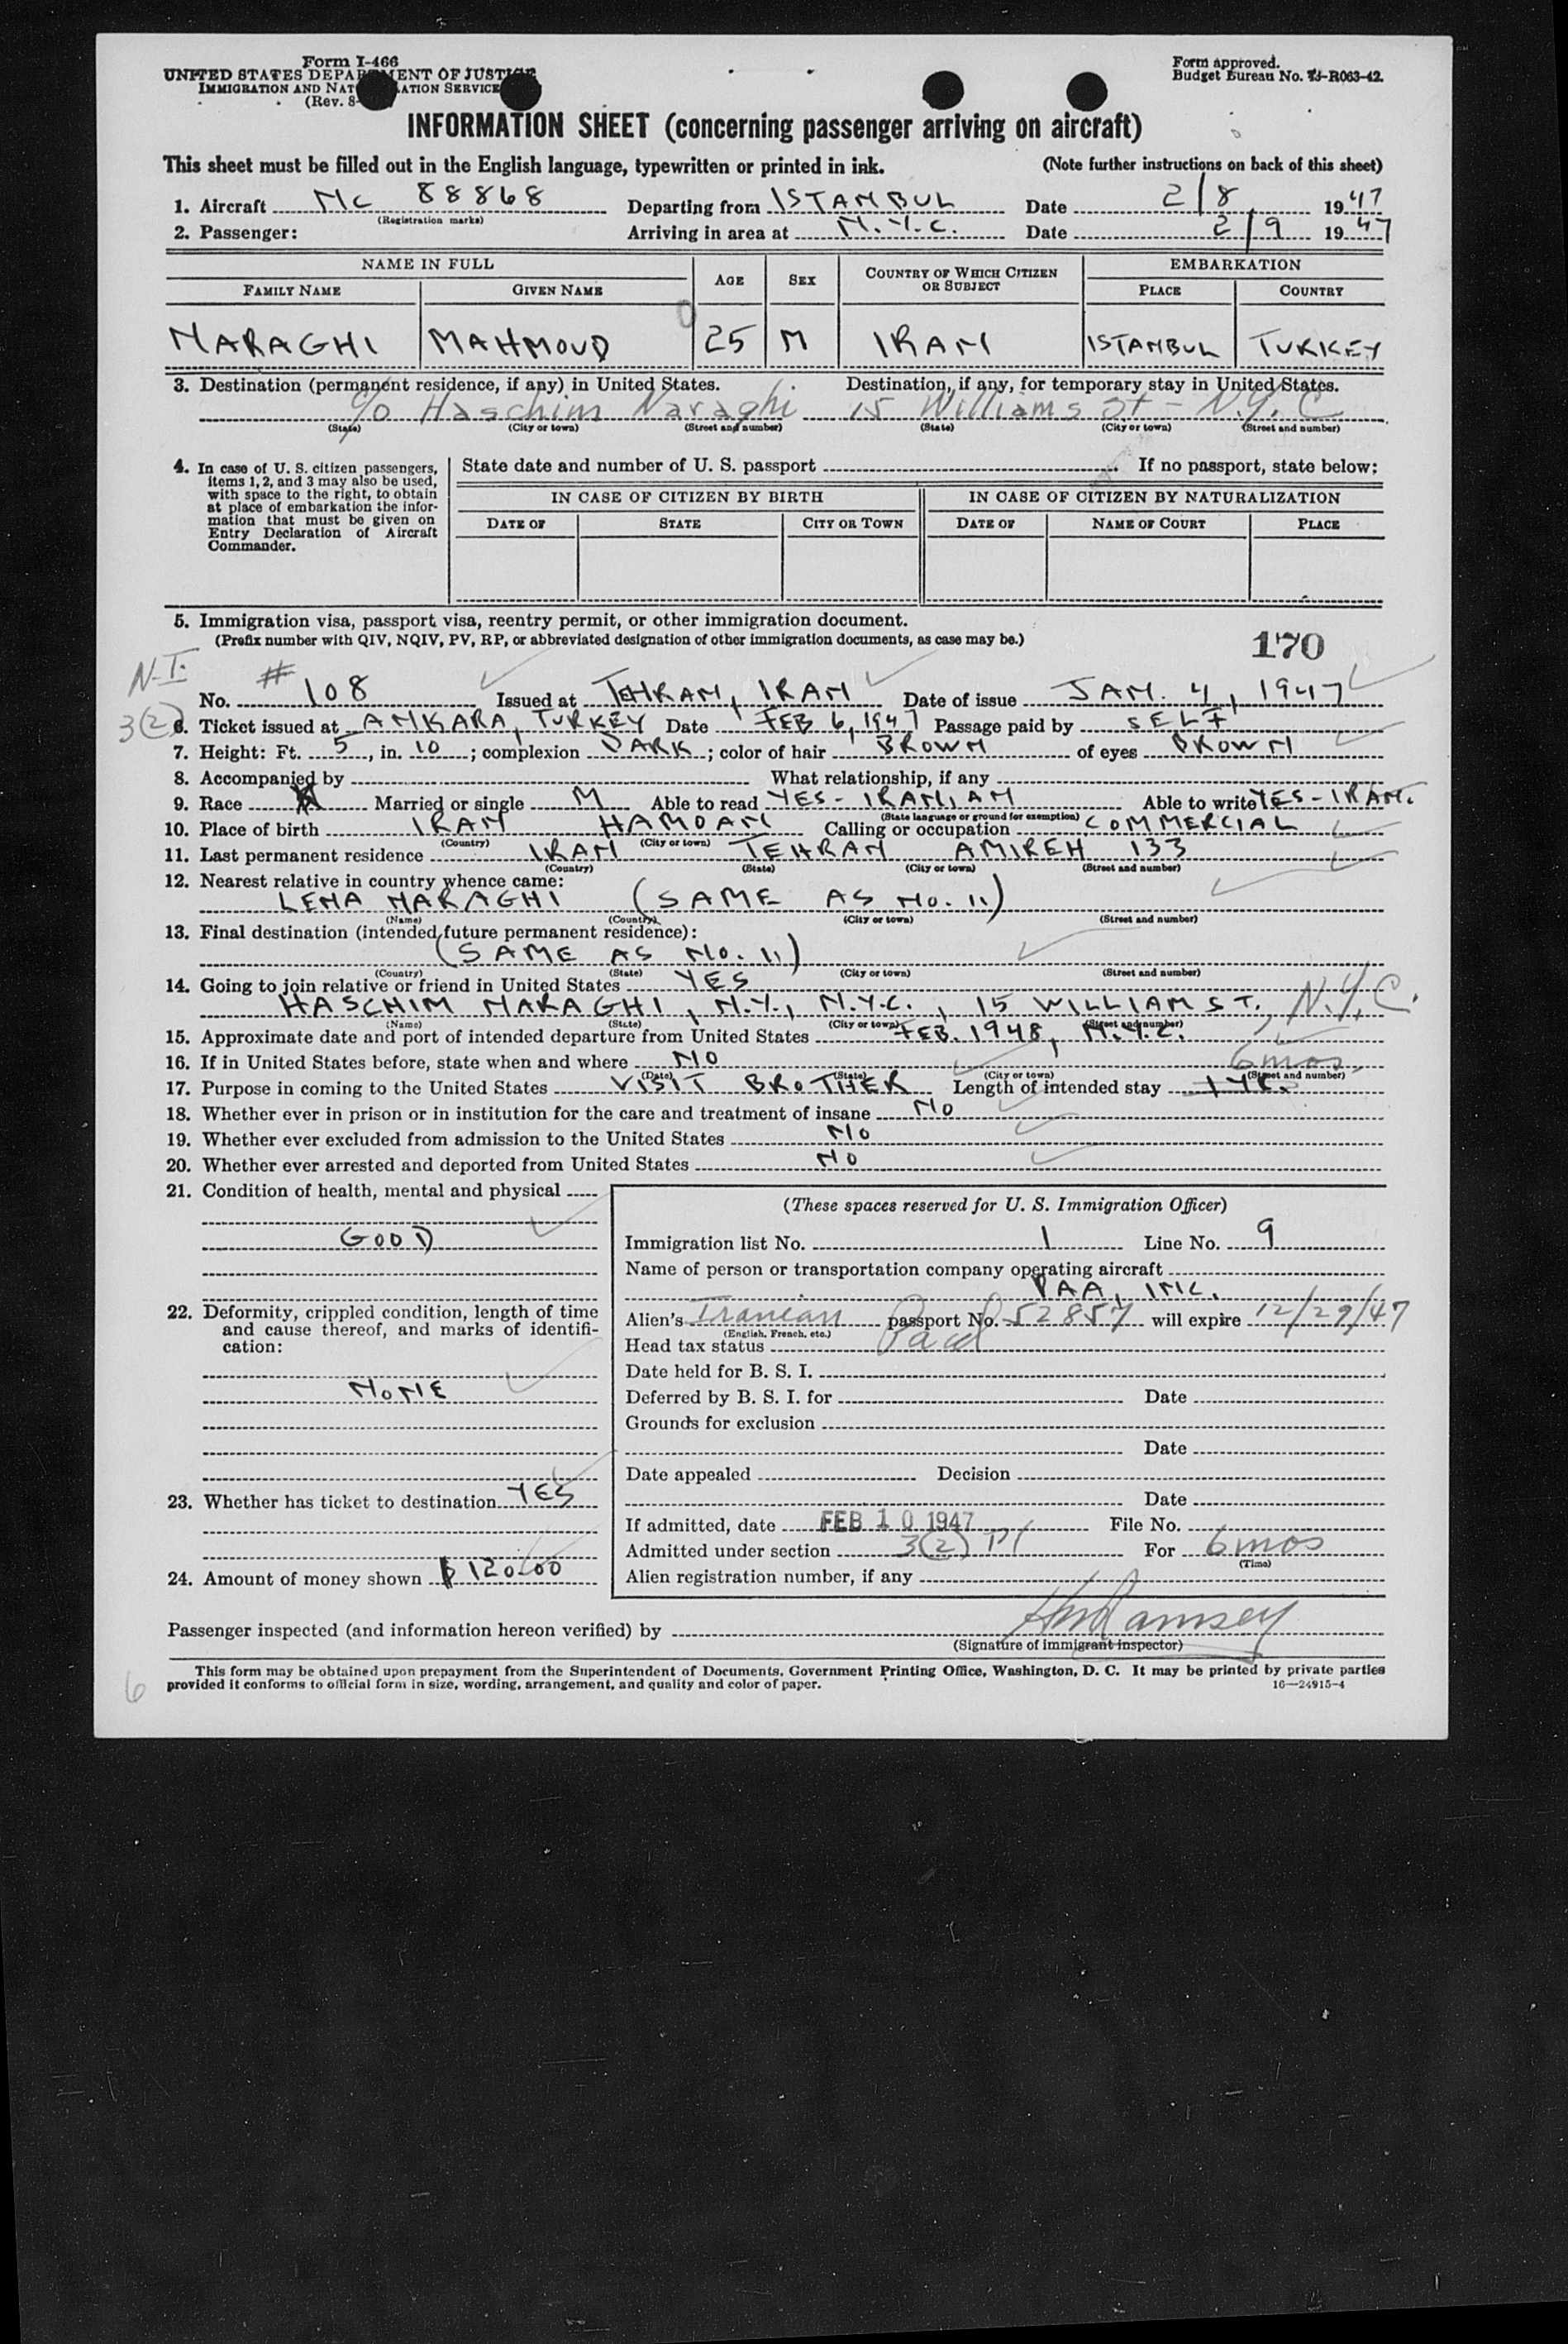 Form I-466
UNITED STATES DEPARTMENT OF JUSTICE
IMMIGRATION AND NATURALIZATION SERVICE
(Rev. 8-
Form approved.
Budget Bureau No. 43-R063-42.
INFORMATION SHEET (concerning passenger arriving on aircraft)
This sheet must be filled out in the English language, typewritten or printed in ink. (Note further instructions on back of this sheet)
1. Aircraft NC 88868 Departing from ISTANBUL Date 2/8 1947
(Registration marks)
2. Passenger: Arriving in area at N.Y.C. Date 2/9 1947
NAME IN FULL AGE SEX COUNTRY OF WHICH CITIZEN OR SUBJECT EMBARKATION
FAMILY NAME GIVEN NAME PLACE COUNTRY
NARAGHI MAHMOUD 25 M IRAN ISTANBUL TURKEY
3. Destination (permanent residence, if any) in United States. Destination, if any, for temporary stay in United States.
c/o Haschim Naraghi 15 Williams St - N.Y.C
(State) (City or town) (Street and number) (State) (City or town) (Street and number)
4. In case of U. S. citizen passengers, items 1, 2, and 3 may also be used, with space to the right, to obtain at place of embarkation the information that must be given on Entry Declaration of Aircraft Commander.
State date and number of U. S. passport If no passport, state below:
IN CASE OF CITIZEN BY BIRTH IN CASE OF CITIZEN BY NATURALIZATION
DATE OF STATE CITY OR TOWN DATE OF NAME OF COURT PLACE
5. Immigration visa, passport visa, reentry permit, or other immigration document.
(Prefix number with QIV, NQIV, PV, RP, or abbreviated designation of other immigration documents, as case may be.) 170
N.I. #
No. 108 Issued at TEHRAN, IRAN Date of issue JAN. 4, 1947
3(2)
6. Ticket issued at ANKARA, TURKEY Date FEB 6, 1947 Passage paid by SELF
7. Height: Ft. 5, in. 10; complexion DARK; color of hair BROWN of eyes BROWN
8. Accompanied by What relationship, if any
9. Race Married or single M Able to read YES - IRANIAN Able to write YES - IRAN.
(State language or ground for exemption)
10. Place of birth IRAN HAMDAN Calling or occupation COMMERCIAL
(Country) (City or town)
11. Last permanent residence IRAN TEHRAN AMIREH 133
(Country) (State) (City or town) (Street and number)
12. Nearest relative in country whence came:
LENA NARAGHI (SAME AS NO. 11)
(Name) (Country) (City or town) (Street and number)
13. Final destination (intended future permanent residence):
(SAME AS NO. 11)
(Country) (State) (City or town) (Street and number)
14. Going to join relative or friend in United States YES
HASCHIM NARAGHI, N.Y., N.Y.C., 15 WILLIAM ST., N.Y.C.
(Name) (State) (City or town) (Street and number)
15. Approximate date and port of intended departure from United States FEB. 1948, N.Y.C.
16. If in United States before, state when and where NO 6 mos.
(Date) (State) (City or town) (Street and number)
17. Purpose in coming to the United States VISIT BROTHER Length of intended stay 1 YR.
18. Whether ever in prison or in institution for the care and treatment of insane NO
19. Whether ever excluded from admission to the United States NO
20. Whether ever arrested and deported from United States NO
21. Condition of health, mental and physical
GOOD
22. Deformity, crippled condition, length of time and cause thereof, and marks of identification:
NONE
23. Whether has ticket to destination YES
24. Amount of money shown $ 120.00
(These spaces reserved for U. S. Immigration Officer)
Immigration list No. 1 Line No. 9
Name of person or transportation company operating aircraft
PAA, INC.
Alien's Iranian passport No. 52857 will expire 12/29/47
(English, French, etc.)
Head tax status Paid
Date held for B. S. I.
Deferred by B. S. I. for Date
Grounds for exclusion
Date
Date appealed Decision
Date
If admitted, date FEB 10 1947 File No.
Admitted under section 3(2) For 6 mos
(Time)
Alien registration number, if any
Passenger inspected (and information hereon verified) by HM Ramsey
(Signature of immigrant inspector)
This form may be obtained upon prepayment from the Superintendent of Documents, Government Printing Office, Washington, D. C. It may be printed by private parties
provided it conforms to official form in size, wording, arrangement, and quality and color of paper. 16—24915-4
6